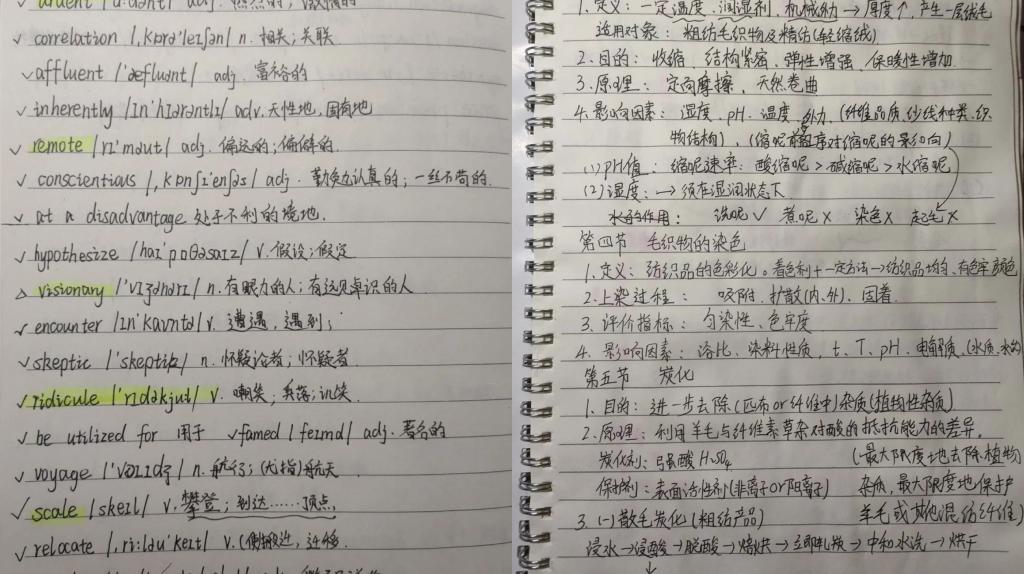 ardent /'ɑ:dənt/ adj. 热烈的；激情的
✓ correlation /,kɒrə'leɪʃən/ n. 相关；关联
✓ affluent /'æfluənt/ adj. 富裕的
✓ inherently /ɪn'hɪərəntlɪ/ adv. 天性地，固有地
remote /rɪ'məut/ adj. 偏远的；偏僻的
✓ conscientious /,kɒnʃɪ'enʃəs/ adj. 勤勉认真的；一丝不苟的.
✓ at a disadvantage 处于不利的境地.
✓ hypothesize /haɪ'pɒθəsaɪz/ v. 假设；假定
△ visionary /'vɪʒənərɪ/ n. 有眼力的人；有远见卓识的人
✓ encounter /ɪn'kauntə/ v. 遭遇，遇到；
✓ skeptic /'skeptɪk/ n. 怀疑论者；怀疑者
✓ ridicule /'rɪdəkjul/ v. 嘲笑；奚落；讥笑
✓ be utilized for 用于 ✓ famed /feɪmd/ adj. 著名的
✓ voyage /'vɔɪɪdʒ/ n. 航行；(尤指)航天
✓ scale /skeɪl/ v. 攀登；到达……顶点，
✓ relocate /,ri:ləu'keɪt/ v. 搬迁，迁移
1. 定义：一定温度、润湿剂、机械力 → 厚度↑，产生一层绒毛
适用对象：粗纺毛织物及精纺(轻缩绒)
2. 目的：收缩、结构紧密、弹性增强、保暖性增加.
3. 原理：定向摩擦、天然卷曲
4. 影响因素：湿度、pH、温度、外力、(纤维品质、纱线种类、织
物结构)，(缩呢前程序对缩呢的影响)
(1) pH值：缩呢速率：酸缩呢 > 碱缩呢 > 水缩呢
(2) 湿度：→ 须在湿润状态下
洗呢✓ 煮呢× 染色× 起毛×
第四节 毛织物的染色
1. 定义：纺织品的色彩化。着色剂+一定方法→纺织品均匀、有色牢颜色
2. 上染过程：吸附、扩散(内、外)、固着.
3. 评价指标：匀染性、色牢度
4. 影响因素：浴比、染料性质、t、T、pH、电解质、(水质、水的
第五节 炭化
1. 目的：进一步去除(匹布or纤维中)杂质(植物性杂质)
2. 原理：利用羊毛与纤维素草杂对酸的抵抗能力的差异.
炭化剂：强酸 H₂SO₄ (最大限度地去除植物
保护剂：表面活性剂(非离子or阳离子) 杂质，最大限度地保护
3. (一)散毛炭化(粗纺产品) 羊毛或其他混纺纤维)
浸水→浸酸→脱酸→焙烘→轧炭→中和水洗→烘干